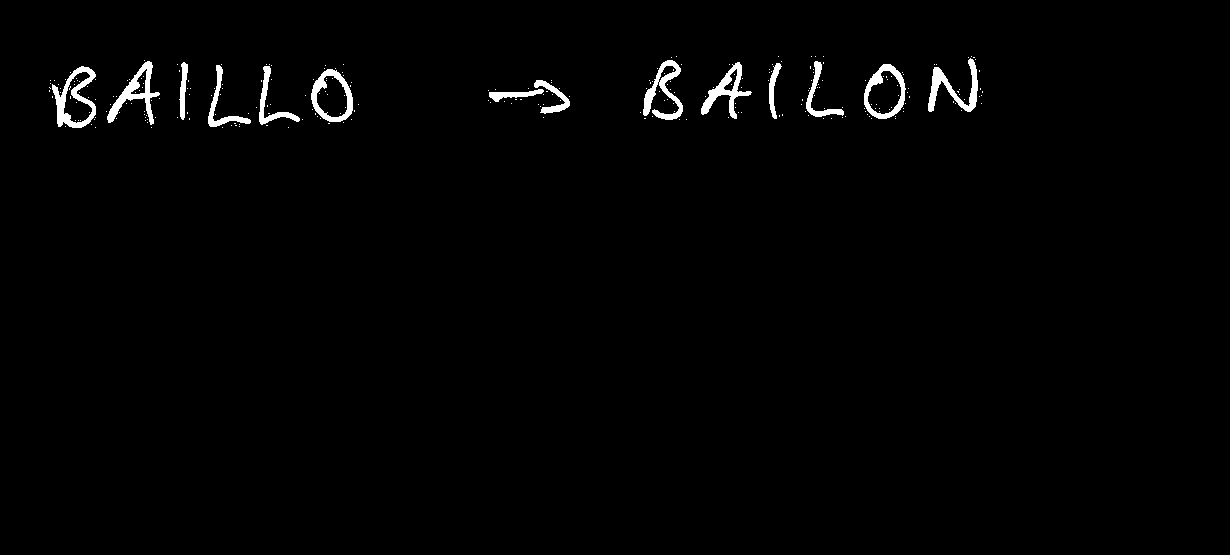 BAILLO → BAILON